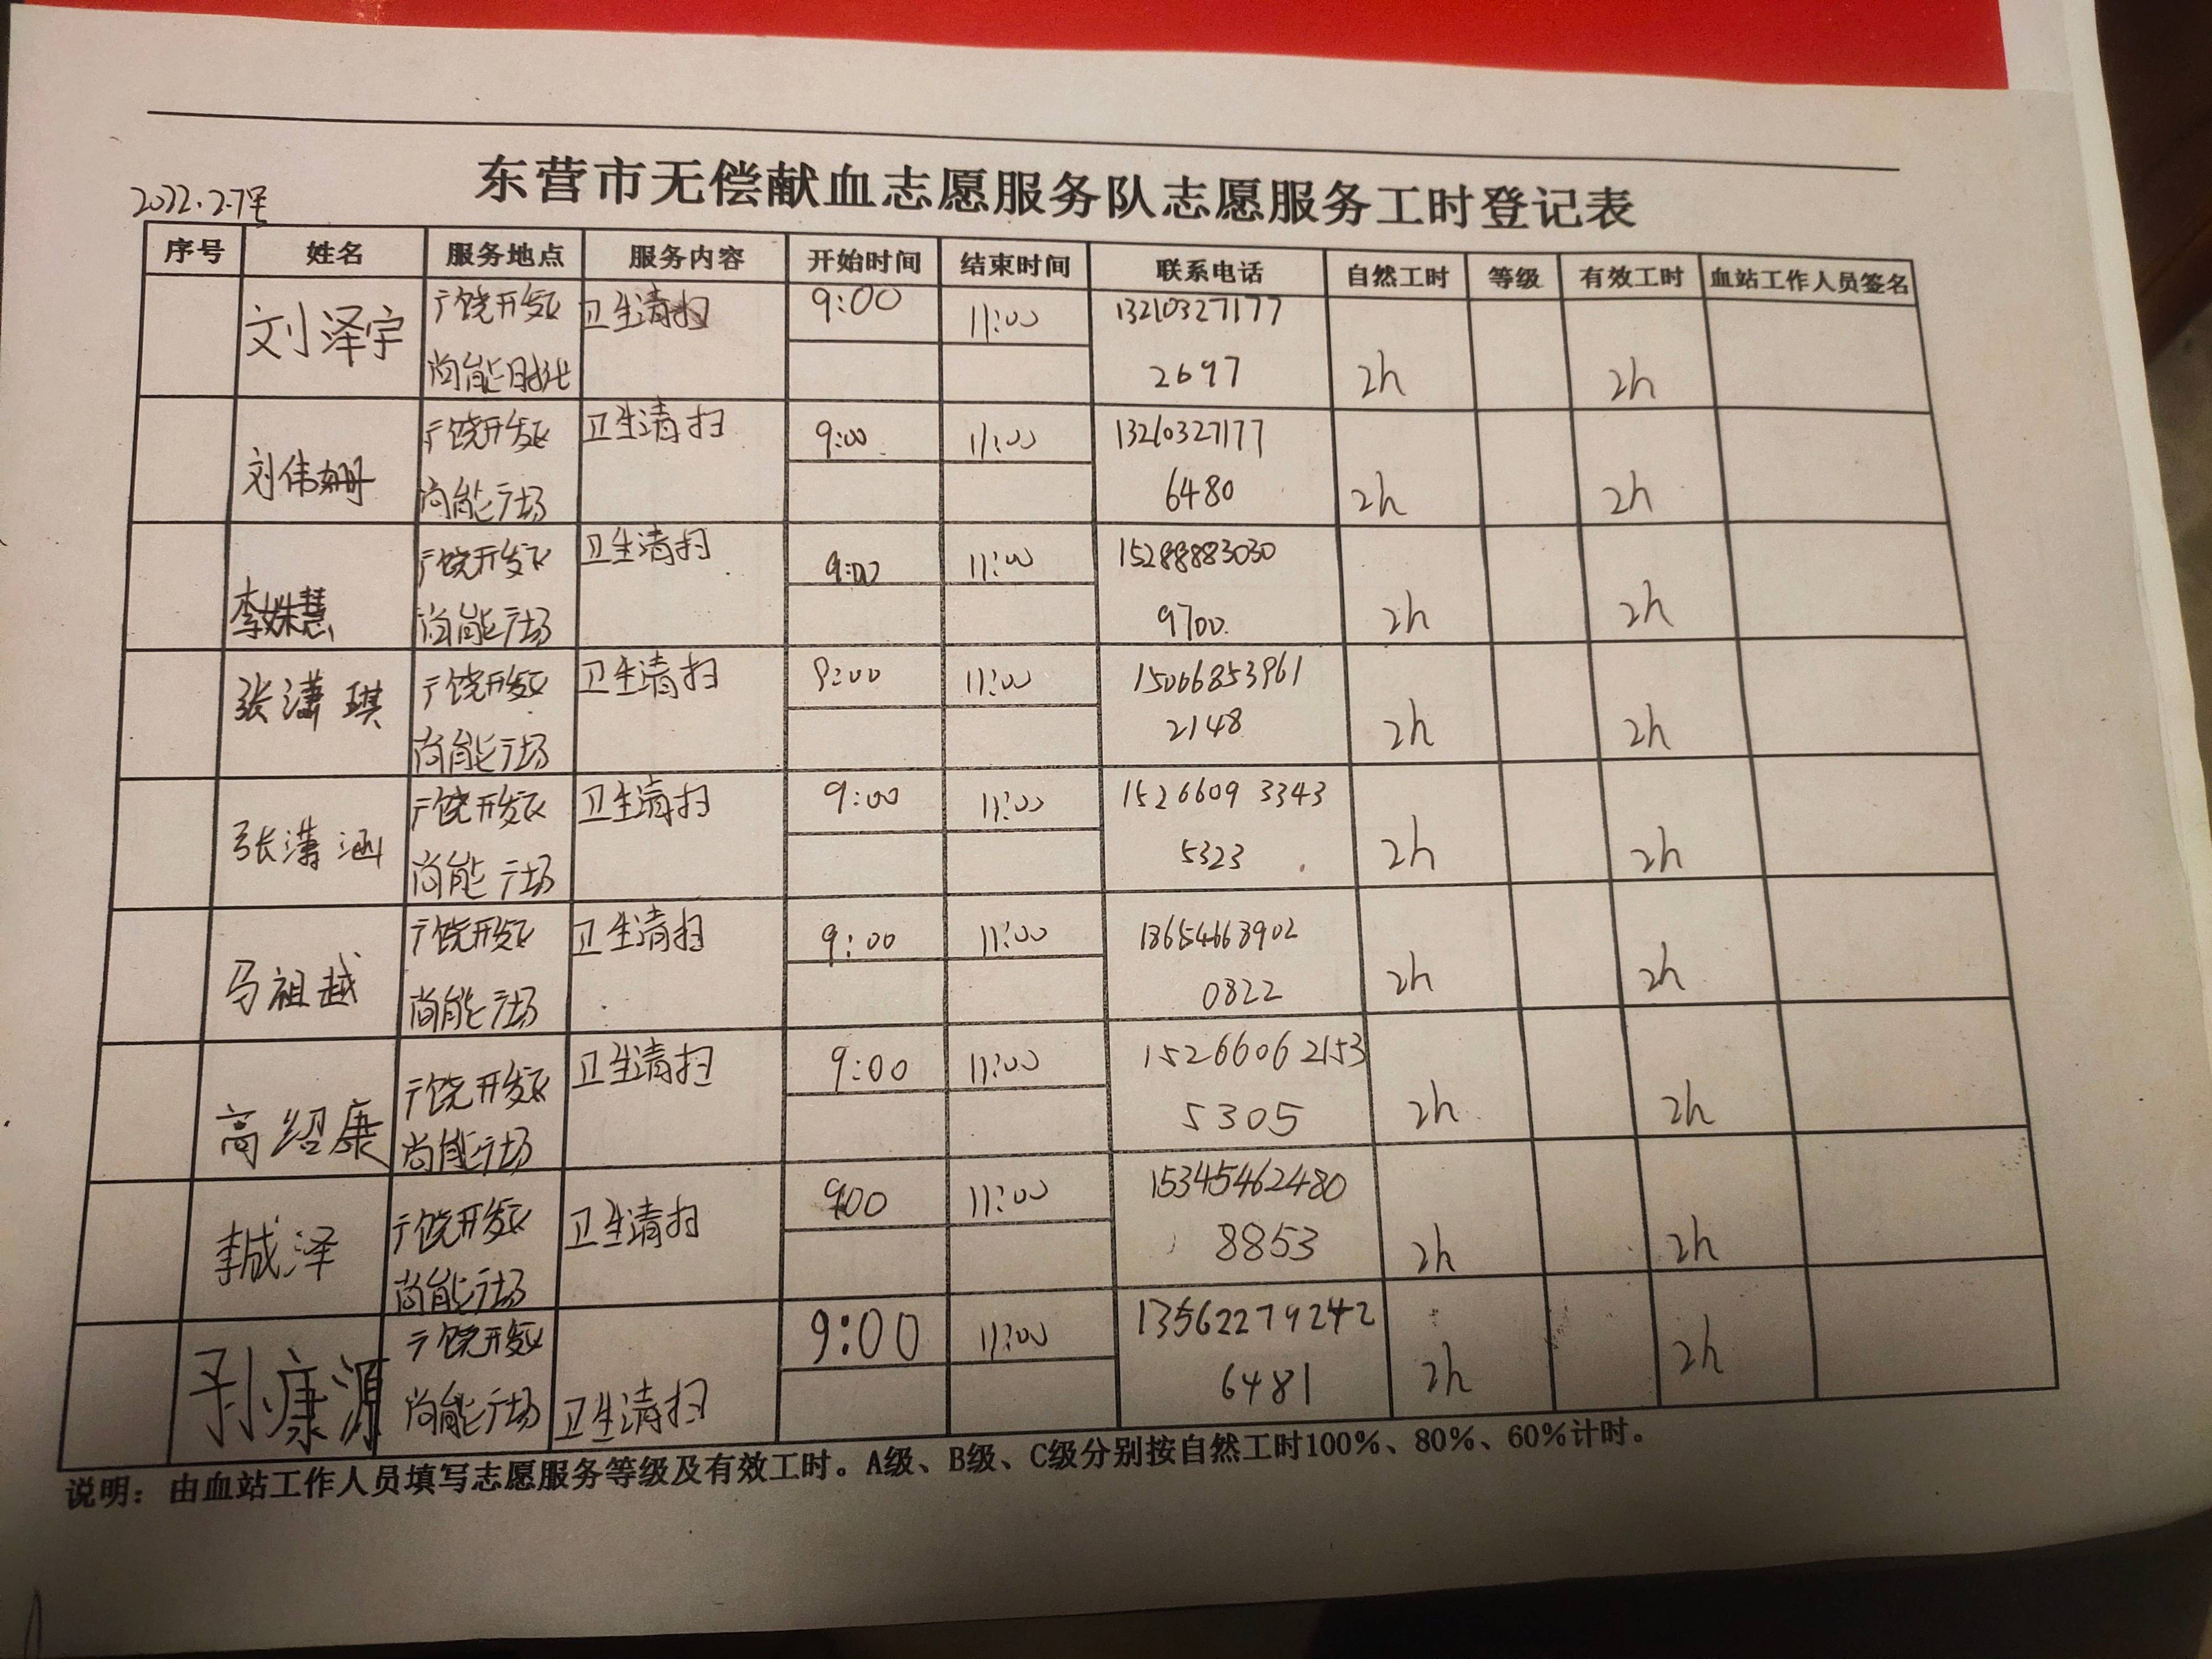 东营市无偿献血志愿服务队志愿服务工时登记表
2022.2.7
序号 姓名 服务地点 服务内容 开始时间 结束时间 联系电话 自然工时 等级 有效工时 血站工作人员签名
刘泽宇 广饶开发区 卫生清扫 9:00 11:00 13210327177
尚能 2697 2h 2h
刘伟姗 广饶开发区 卫生清扫 9:00 11:00 13210327177
尚能广场 6480 2h 2h
李姝慧 广饶开发区 卫生清扫 9:00 11:00 15288883030
尚能广场 9700 2h 2h
张潇琪 广饶开发区 卫生清扫 9:00 11:00 15066853961
尚能广场 2148 2h 2h
张潇涵 广饶开发区 卫生清扫 9:00 11:00 15266093343
尚能广场 5323 2h 2h
马祖越 广饶开发区 卫生清扫 9:00 11:00
尚能广场 0822 2h 2h
高绍康 广饶开发区 卫生清扫 9:00 11:00 15266062153
尚能广场 5305 2h 2h
泽 广饶开发区 卫生清扫 9:00 11:00 15345462480
尚能广场 8853 2h 2h
孙康源 广饶开发区 9:00 11:00 13562279242
尚能广场 卫生清扫 6481 2h 2h
说明：由血站工作人员填写志愿服务等级及有效工时。A级、B级、C级分别按自然工时100%、80%、60%计时。